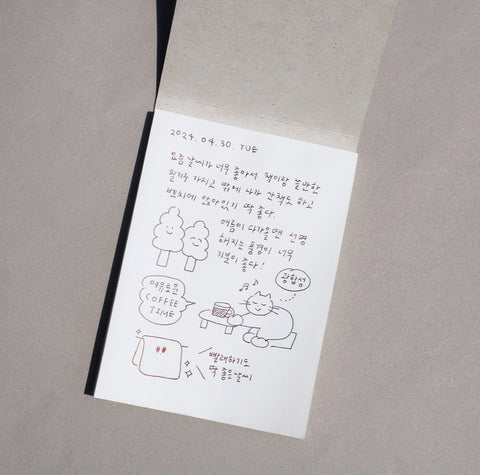 2024. 04. 30. TUE
요즘 날씨가 너무 좋아서 책이랑 쓸만한
필기구 가지고 밖에 나가 산책도 하고
벤치에 앉아있기 딱 좋다.
여름이 다가올땐 선명
해지는 풍경이 너무
기분이 좋다!
광합성
여유로운
COFFEE
TIME
빨래하기도
딱 좋은날씨